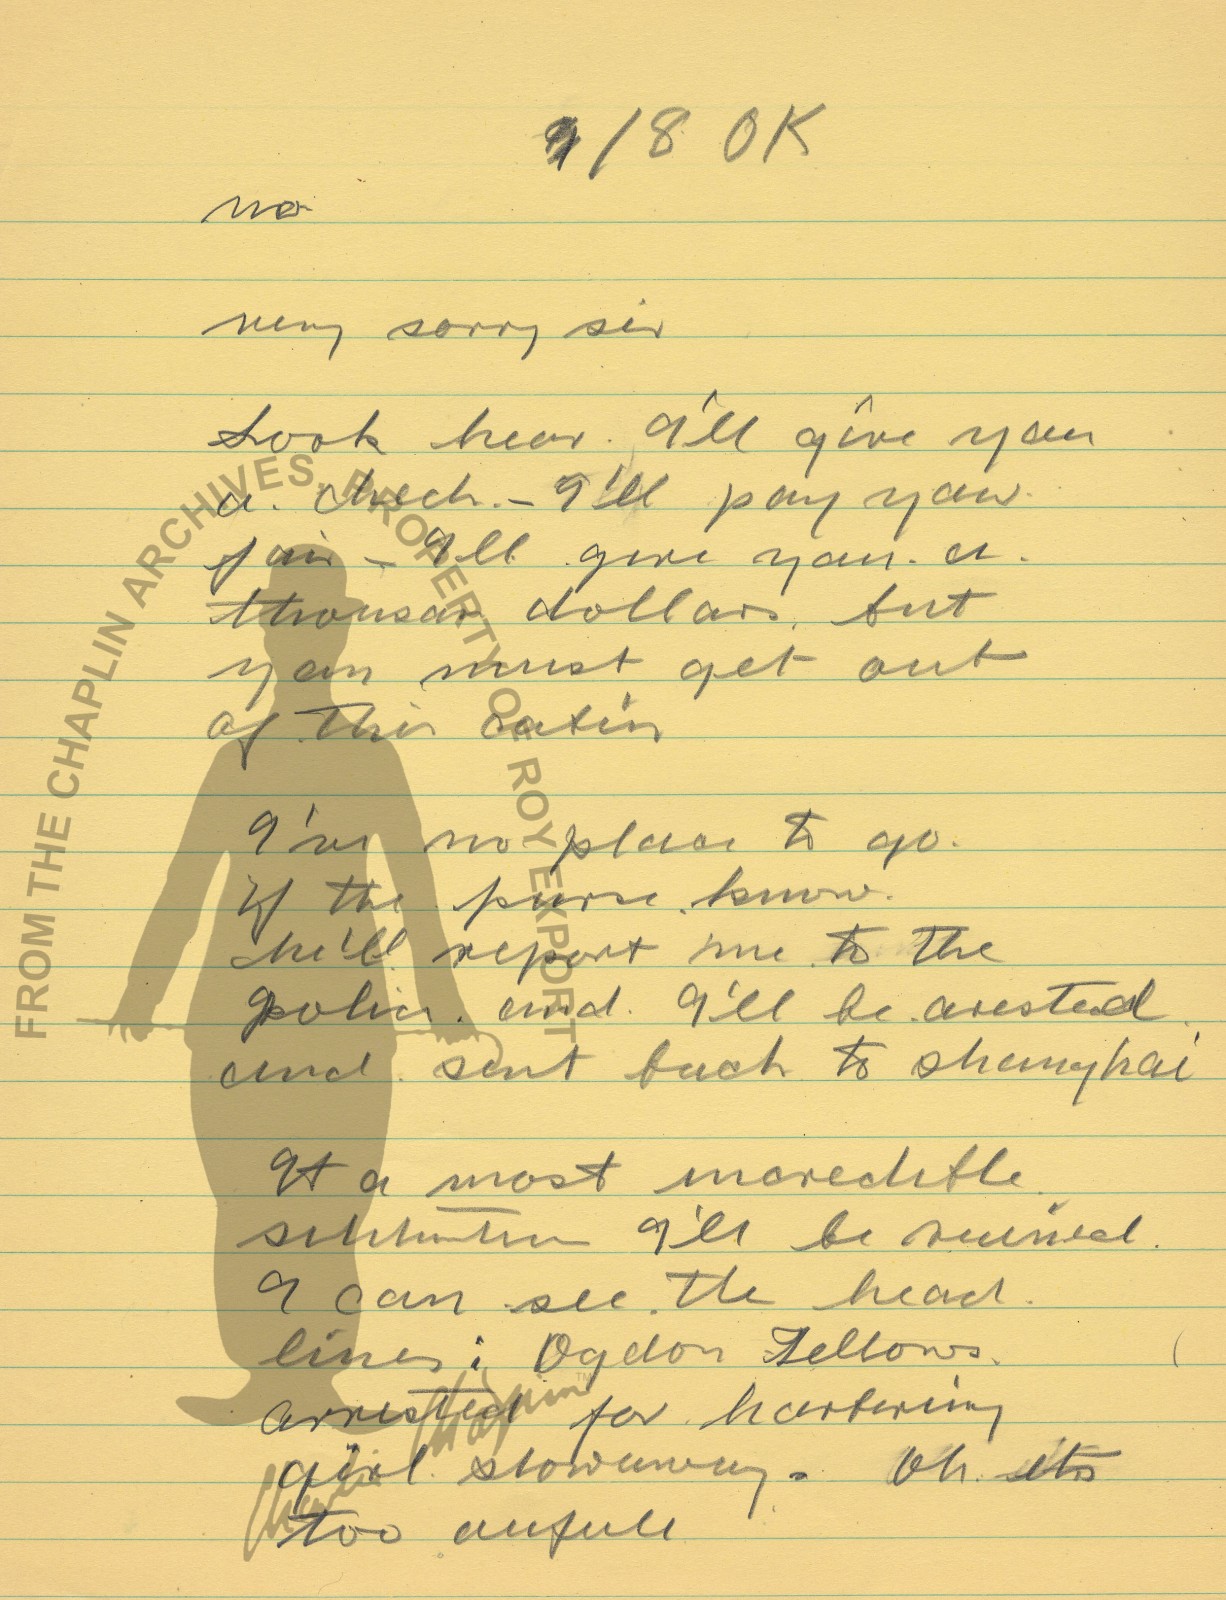 9/8 OK
no
very sorry sir
Look hear. I'll give you
a. check. – I'll pay your
fair – I'll give you. a.
thousan dollars, but
you must get out
of this cabin
I've no place to go.
If the purser. know.
he'll report me to the
police. and. I'll be arested
and sent back to shanghai
It a most incredible
I'll be ruined.
I can see. the head.
lines; Ogdon Fellows.
arrested for harboring
girl stowaway. Oh its
too awfull
FROM THE CHAPLIN ARCHIVES, PROPERTY OF ROY EXPORT
Charlie Chaplin™